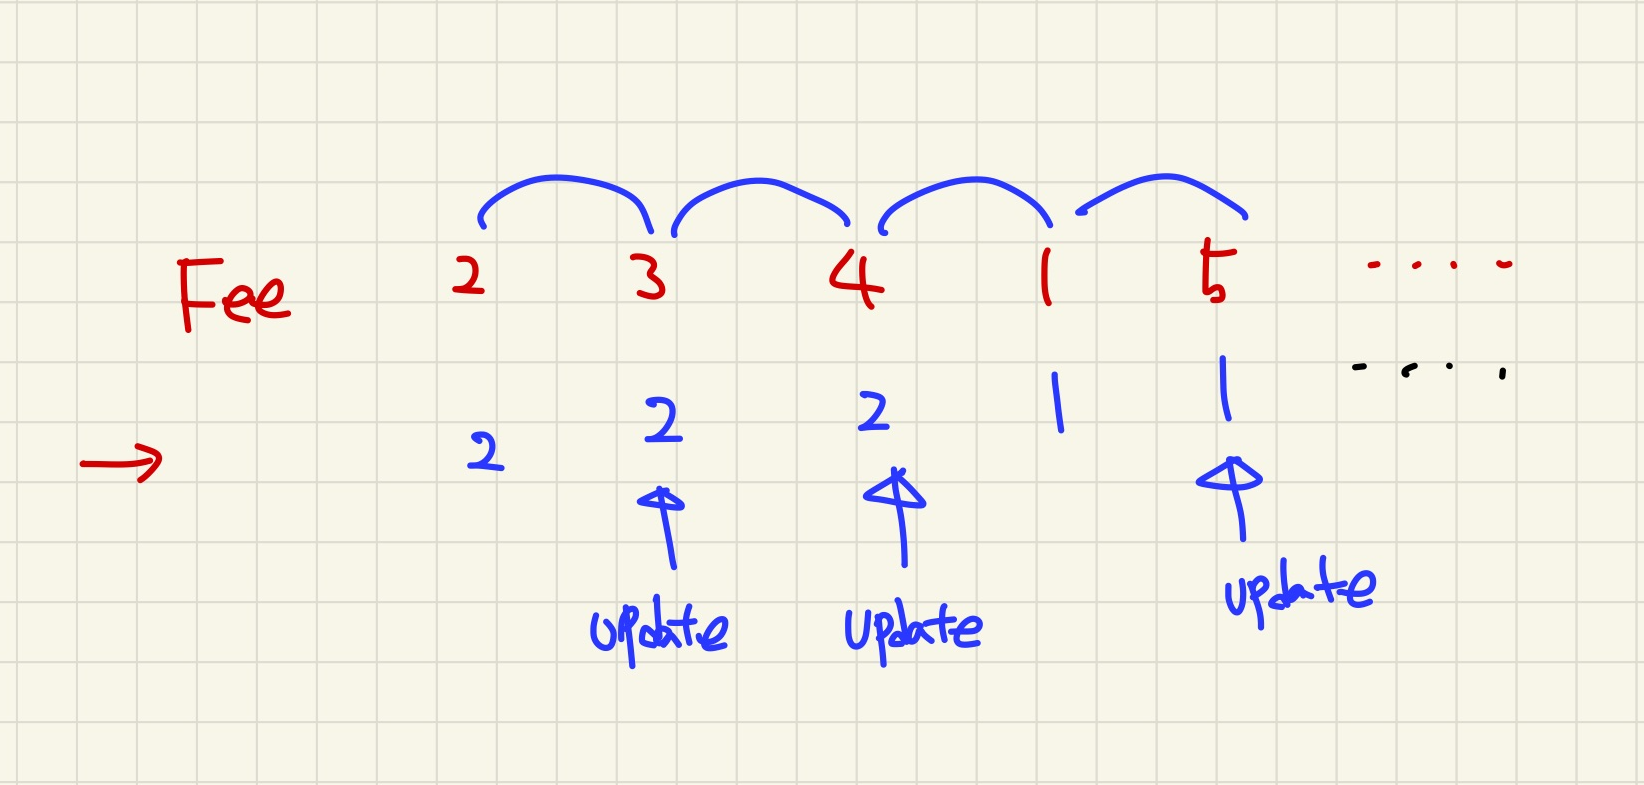 Fee 2 3 4 1 5 . . . .
→ 2 2 2 1 1 . . . .
update update update